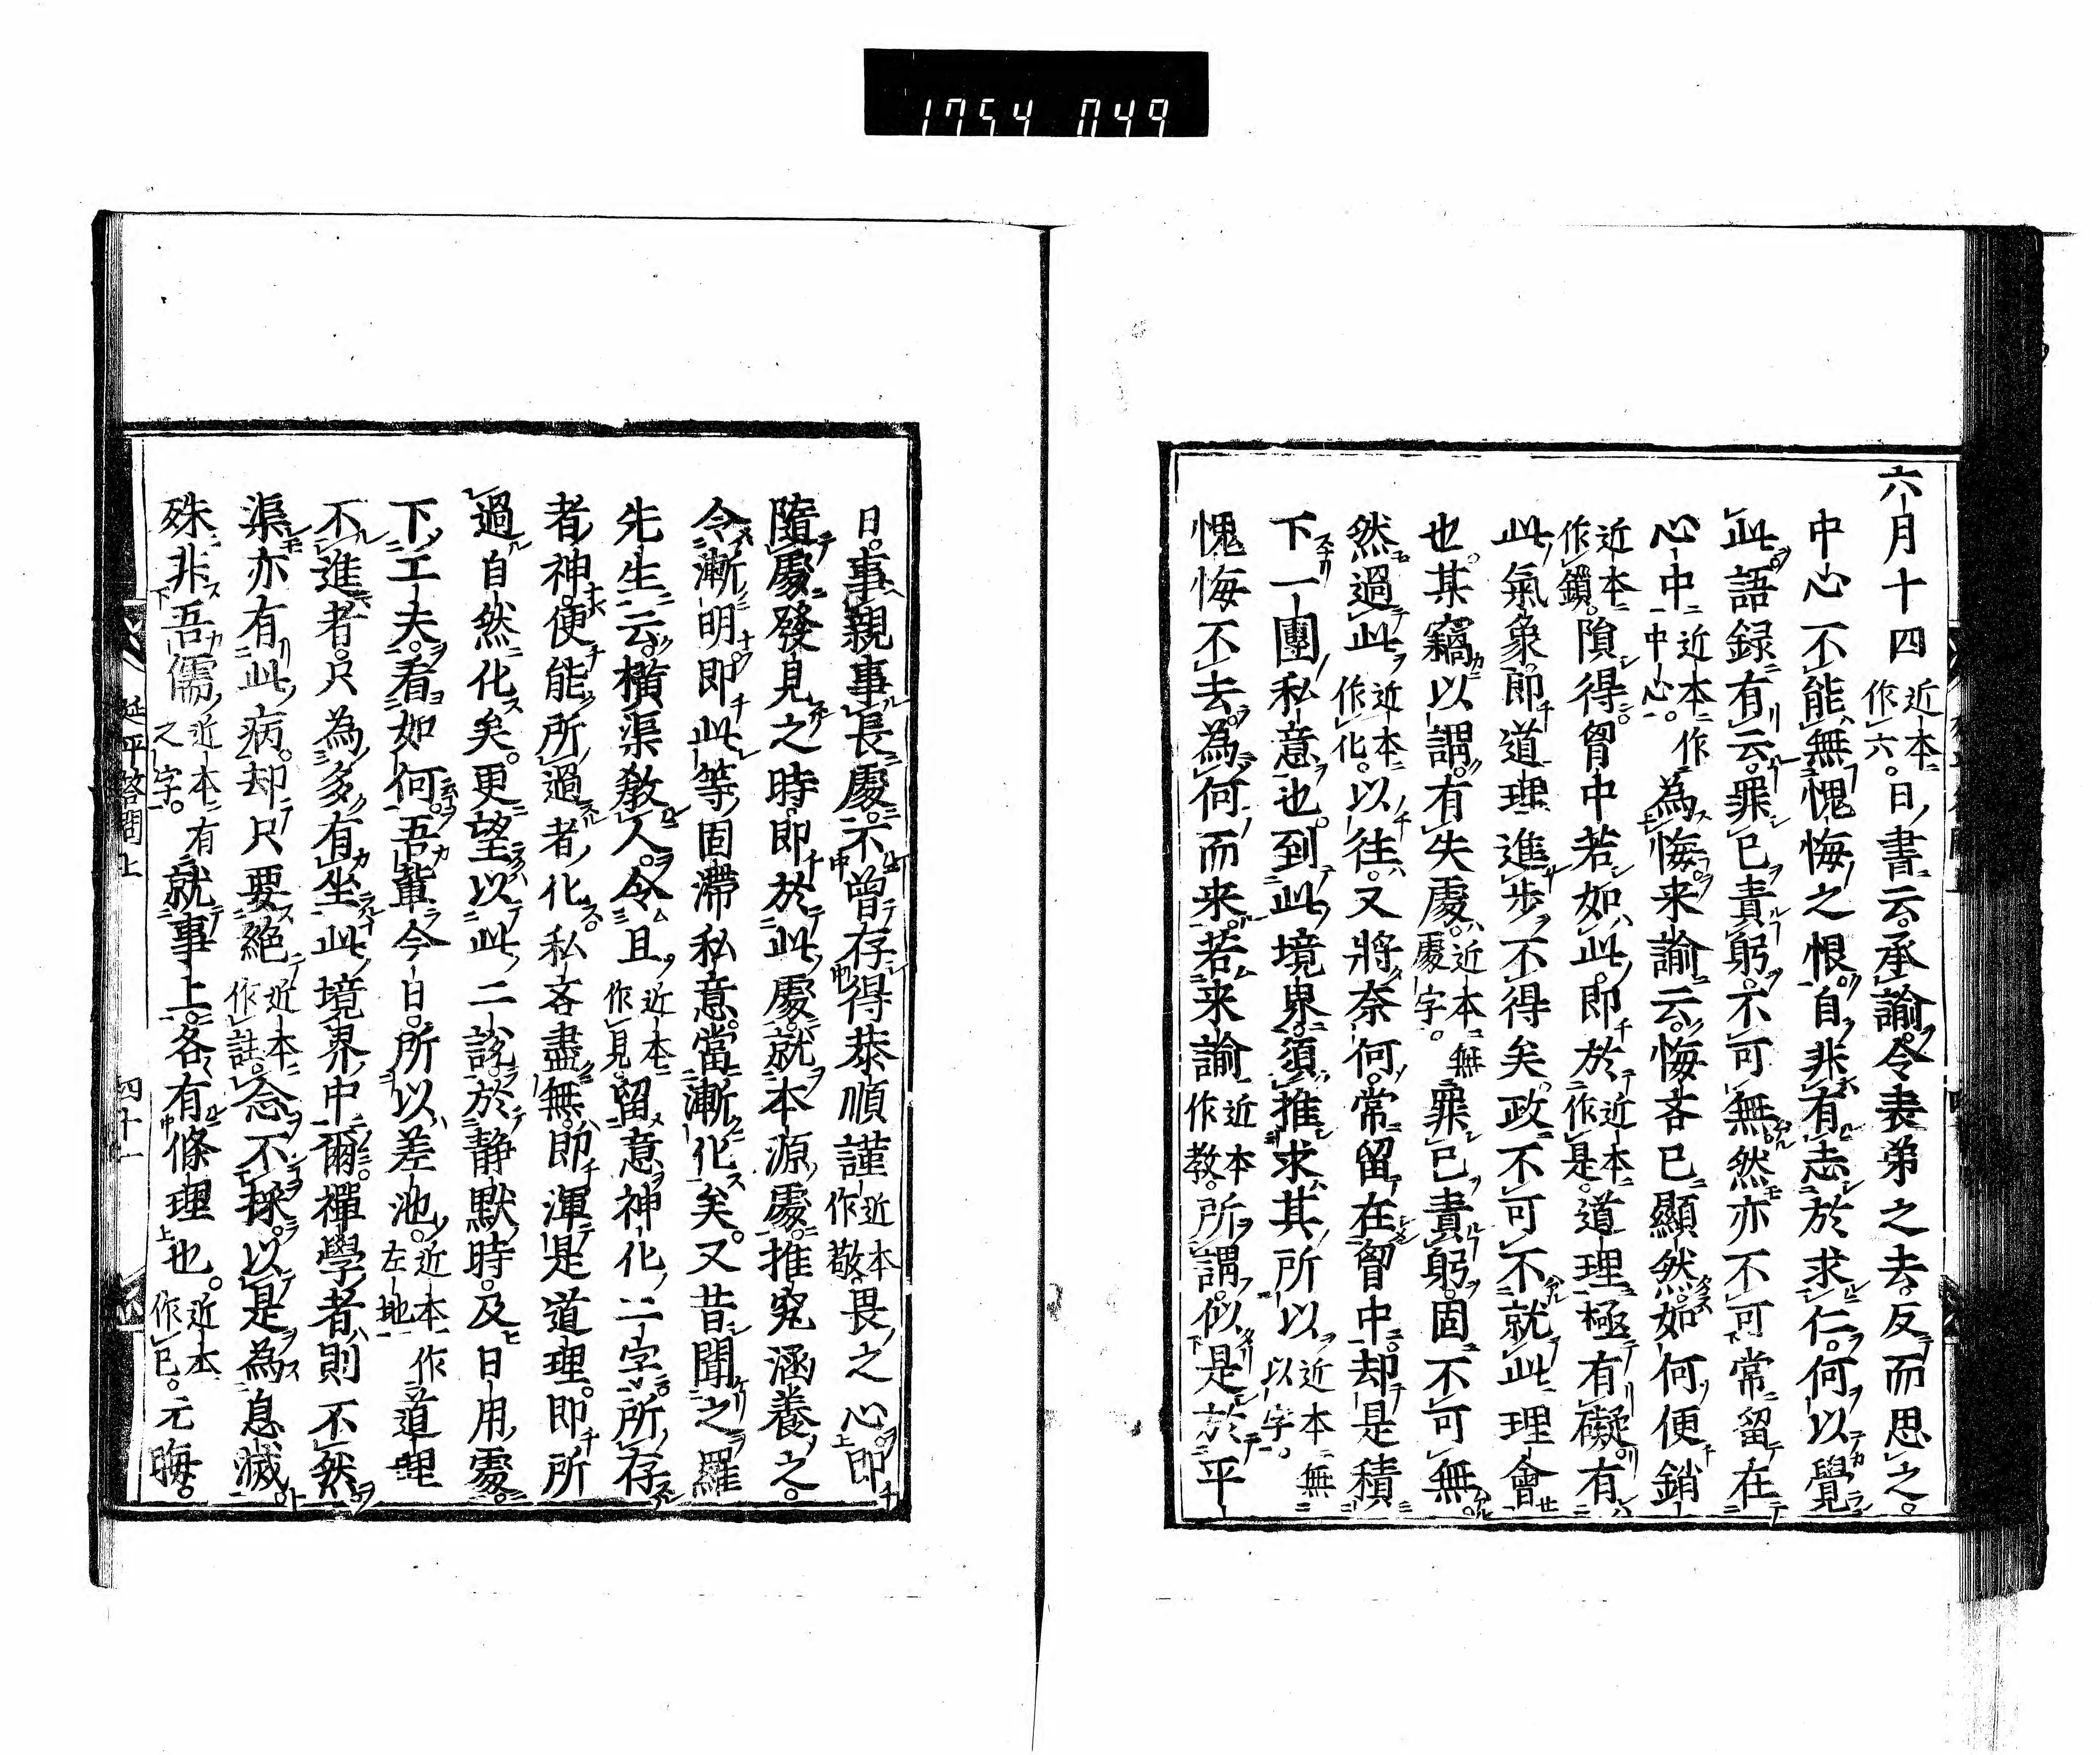 1754 049
六月十四近本作六。日書云。承諭。令表弟之去。反而思之。
中心不能無愧悔之恨。自非有志於求仁。何以覺
此。語録有云。罪已責躬。不可無。然亦不可常留在
心中近本作中心。為悔。来諭云。悔吝已顯然。如何便銷
近本作鎖。隕得胷中若如此。即於近本作是。道理極有礙。有
此氣象。即道理進步不得矣。政不可不就此理會
也。某竊以謂。有失處。近本無處字。罪已責躬。固不可無。
然過此近本作化。以往。又將奈何。常留在胷中。却是積
下一團私意也。到此境界。須推求其所以近本無以字。
愧悔不去。為何而来。若来諭近本作教。所謂。似是於平
日。事親事長處。不曾存得恭順謹近本作敬。畏之心。即
隨處發見之時。即於此處。就本源處。推究涵養之。
令漸明。即此等固滯私意。當漸化矣。又昔聞之羅
先生云。横渠教人。令且近本作見。留意神化二字。所存
者神。便能所過者化。私吝盡無。即渾是道理。即所
過自然化矣。更望以此二說。於静默時。及日用處。
下工夫。看如何。吾輩今日。所以差池。近本作左地。道理
不進者。只為多有坐此境界中爾。禪學者則不然。
渠亦有此病。却只要絕近本作註。念不採。以是為息滅。
殊非吾儒近本有之字。就事上。各有條理也。近本作已。元晦。
延平答問上 四十一